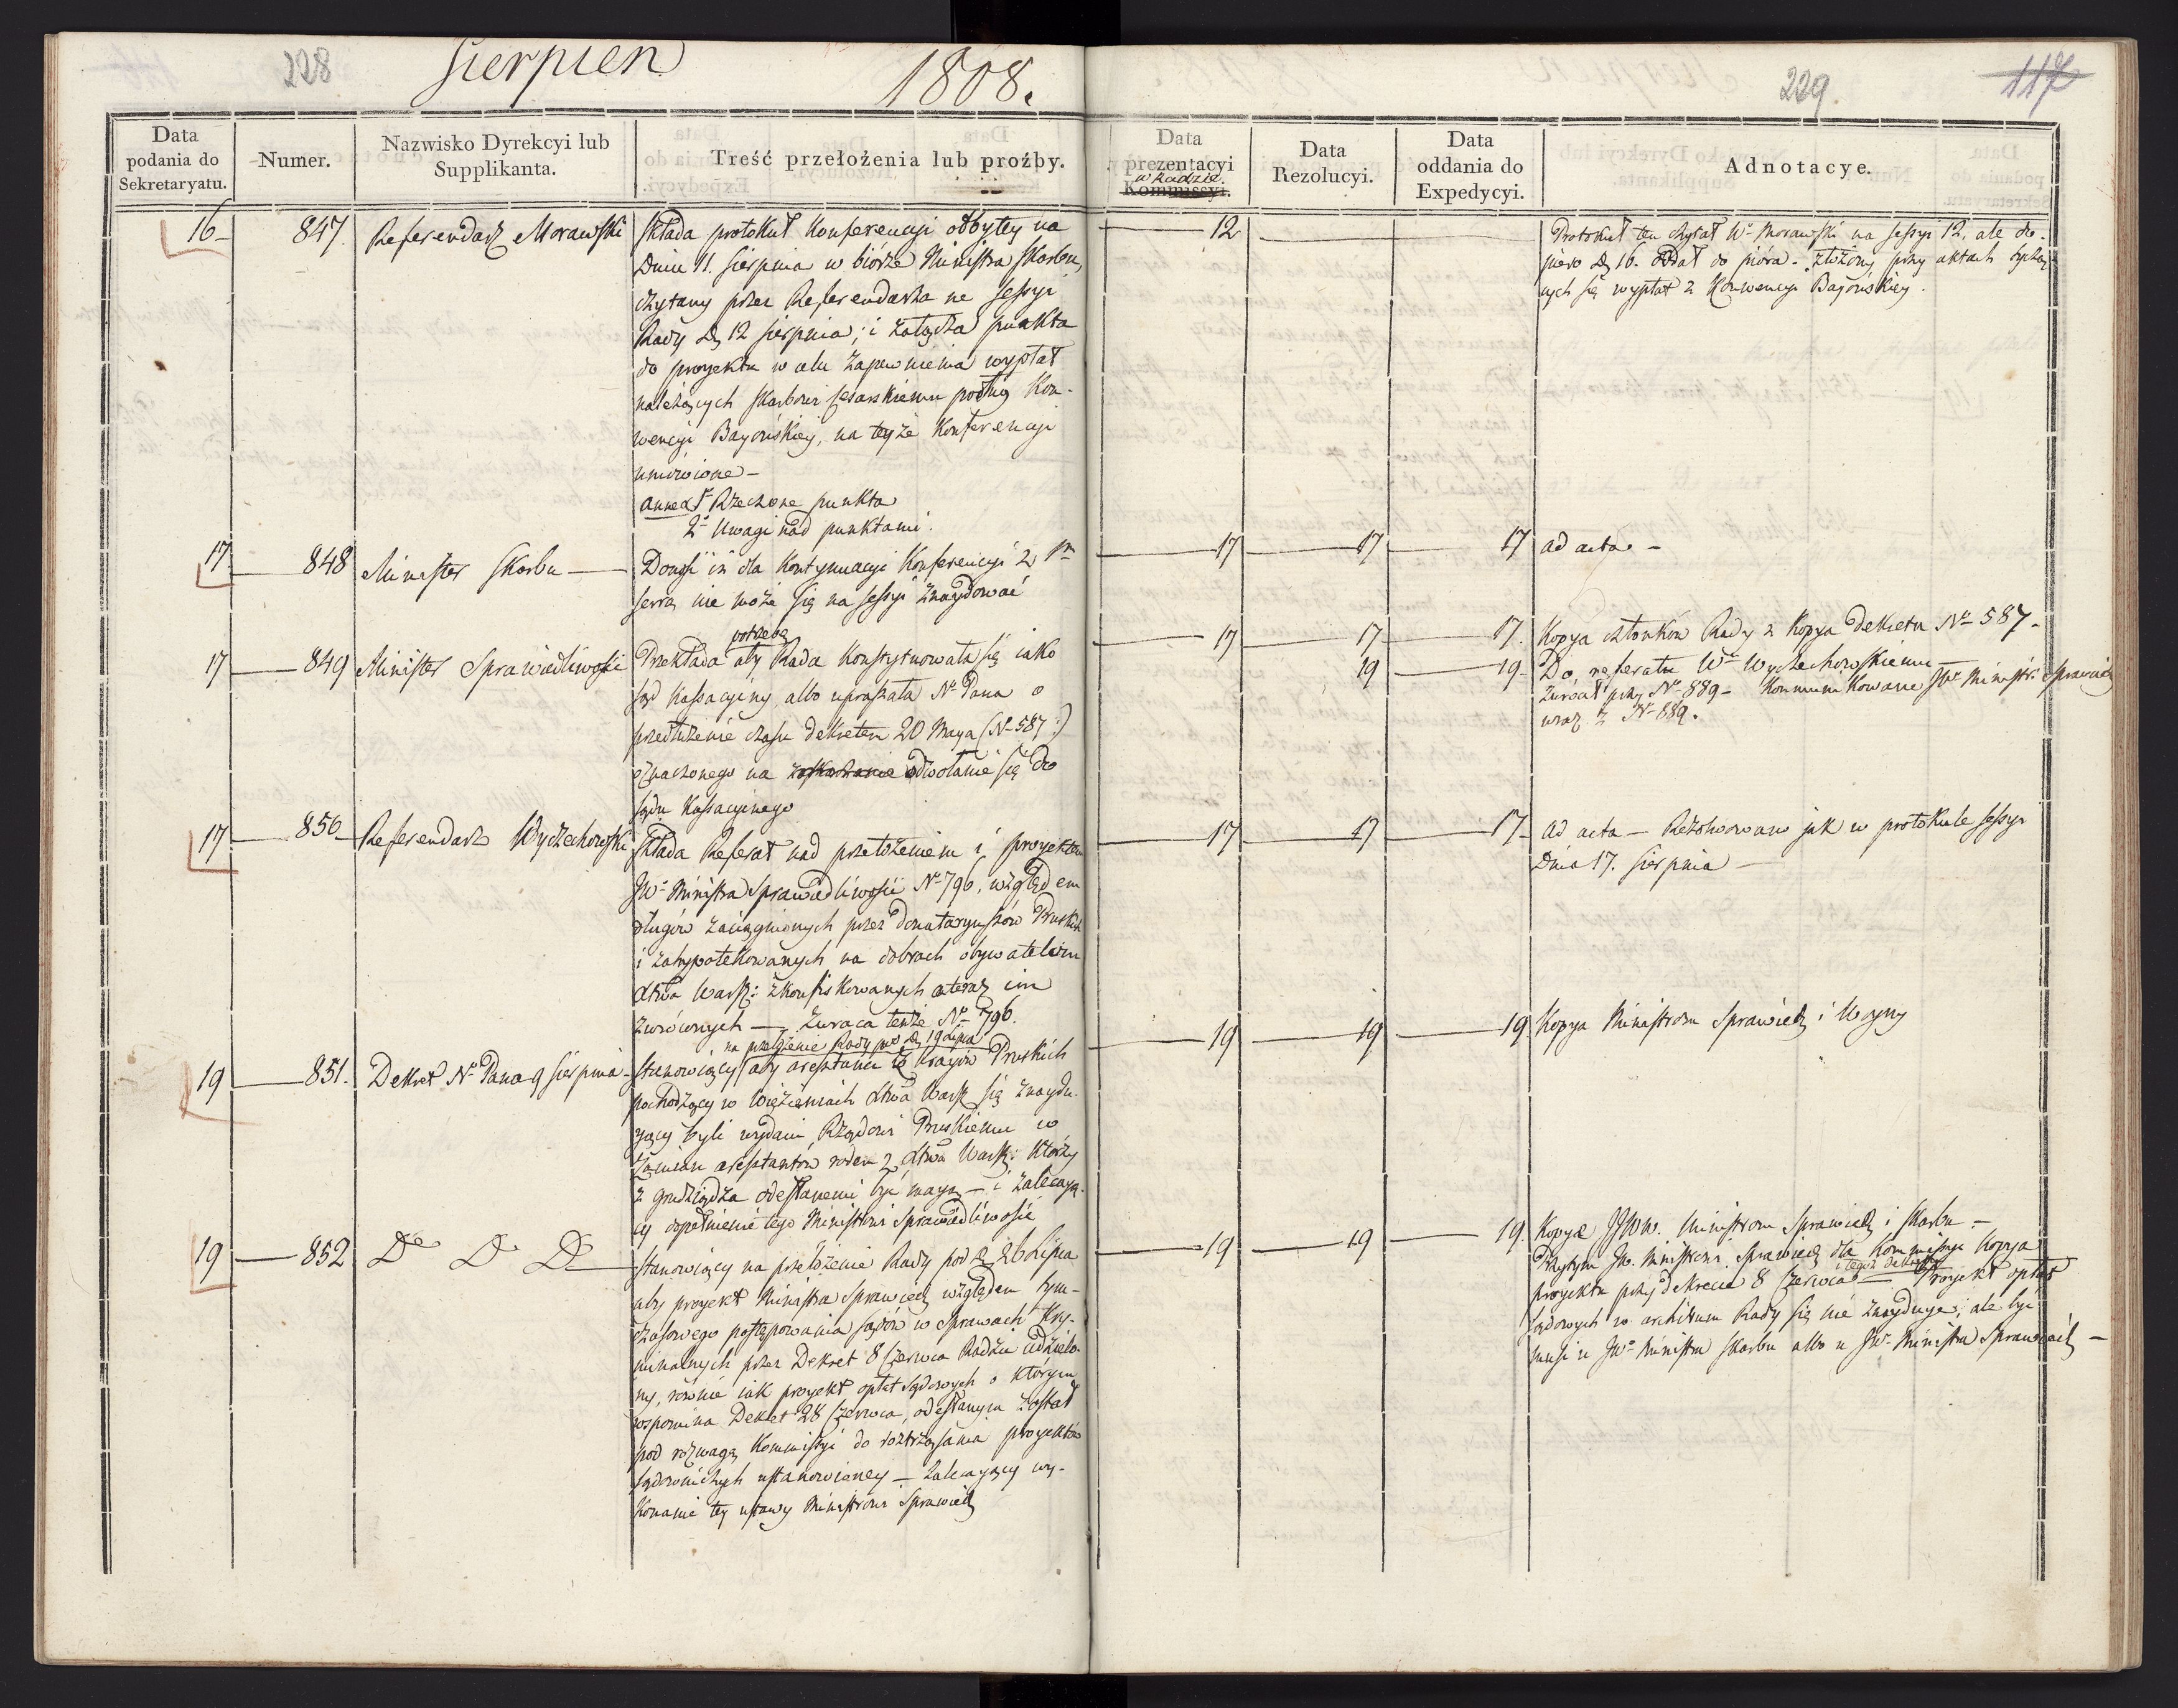 228
Sierpień
1808.
Data podania do Sekretaryatu.
Numer.
Nazwisko Dyrekcyi lub Supplikanta.
Treść przełożenia lub proźby.
16
847.
Referendarz Morawski
Składa protokuł Konferencyi odbytey na
Dniu 11. Sierpnia w biórze Ministra Skarbu,
czytany przez Referendarza na Sessyi
Rady D. 12 sierpnia; i załącza punkta
do proyektu w celu zapewnienia wypłat
należących Skarbowi Cesarskiemu podług Kon-
wencyi Bayońskiey, na teyże Konferencyi
umówione –
annex 1° Rzeczone punkta
2° Uwagi nad punktami.
17
848
Minister Skarbu
Donosi iż dla kontynuacyi Konferencyi z Pm
Serra nie może się na sessyi znaydować
17
849
Minister Sprawiedliwości
potrzebę
Przekłada aby Rada konstytuowała się iako
sąd kassacyiny, albo upraszała N° Pana o
przedłużenie czasu dekretem 20 Maja (N° 587:)
oznaczonego na odwołanie się do
sądu Kassacyinego
17
850
Referendarz Wyczechowski
Składa Referat nad przełożeniem i proyektem
JW° Ministra Sprawiedliwości N° 796, względem
długów zaciągnionych przez donataryuszów Pruskich
i zahypotekowanych na dobrach obywatelom
Xtwa Warsz: skonfiskowanych a teraz im
zwróconych — Zwraca tenże N° 796.
19
851.
Dekret N° Pana 9 sierpnia
na przełożenie Rady pod D. 19 Lipca
Stanowiący aby aresztanci z kraiów Pruskich
pochodzący w więzieniach Xtwa Warsz się znaydu-
yący byli wydani Rządowi Pruskiemu w
zamian aresztantów rodem z Xtwa Warsz: którzy
z Grudziądza odesłanemi być mają – i zalecaią-
cy dopełnienie tego Ministrowi Sprawiedliwości
19
852
D° D° D°
Stanowiący na przełożenie Rady pod D. 26 Lipca
aby proyekt Ministra Sprawied. względem tym-
czasowego postępowania sądów w sprawach kry-
minalnych przez Dekret 8 Czerwca Radzie udzielo-
ny, równie iak proyekt opłat sądowych o którym
wspomina Dekret 28 Czerwca, odesłanym został
pod rozwagę Kommissyi do roztrząsania proyektów
sądowniczych ustanowioney – Zalecaiący wy-
konanie tey ustawy Ministrowi Sprawied.
229
117
Data prezentacyi
w Radzie.
Kommissyi.
Data Rezolucyi.
Data oddania do Expedycyi.
Adnotacye.
12
Protokuł ten czytał W° Morawski na sessyi 12, ale do-
piero D. 16. oddał do pióra – złożony przy aktach tyczą-
cych się wypłat z Konwencyi Bajońskiey.
17
17
17
ad acta –
17
17
17.
Kopya członkom Rady z Kopyą Dekretu N° 587 –
19
19
Do referatu W° Wyczechowskiemu
Zwrócił przy N° 889 – Kommunikowane JW° Ministr: Sprawied.
wraz z N° 889.
17
17
17
ad acta – Rezolwowano jak w protokule sessyi
Dnia 17. sierpnia –
19
19
19
Kopya Ministrom Sprawied. i Woyny
19
19
19.
Kopye JJWW. Ministrom Sprawied. i Skarbu –
JW. Ministrowi Sprawied. dla Kommissyi Kopya
i tegoż dekretu
proyektu przy dekrecie 8 Czerwca – Proyekt opłat
sądowych w archiwum Rady się nie znayduje; ale być
musi u JW° Ministra Skarbu albo u JW° Ministra Sprawied. –